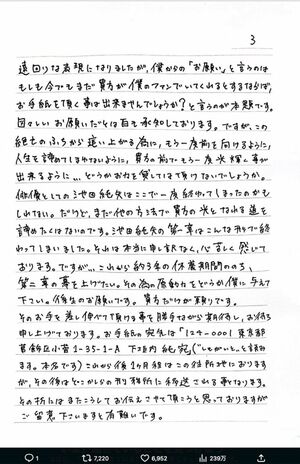 3
遠回りな表現になりましたが、僕からの「お願い」と言うのは
もしも今でもまだ貴方が僕のファンでいてくれるとするならば、
お手紙を頂く事は出来ませんでしょうか？と言うのが本題です。
図々しいお願いだとは百も承知しております。ですが、この
絶望のふちから這い上がる為に、もう一度前を向けるように、
人生を諦めてしまわないように、貴方の前でもう一度光輝く事が
出来るように…、どうかお力を貸しては頂けないでしょうか。
俳優としての
はここで一度終わってしまったのかも
しれない。だけど、まだ他の方法で貴方の光となれる道を
諦めたくはないのです。
の第一章はこんな形で終
わってしまいました。それは本当に申し訳なく、心苦しく感じて
おります。ですが…これから約3年の休養期間ののち、
第二章の幕を上げたい。その為の原動力をどうか僕に与えて
下さい。後生のお願いです。貴方だけが頼りです。
そのお手を差し伸べて頂ける事を勝手ながら期待し、お待ち
申し上げております。お手紙の宛先は「〒124-0001 東京都
葛飾区小菅1-35-1-A
宛」
ます。本名です)これから後1ヶ月程はこの住所におります
が、その後はどこかしらの刑務所に移送される事となります。
その折にはまたこうしてお伝えさせて頂こうと思っておりますが
ご留意下さいますと有難いです。
1
7,220
6,952
239万